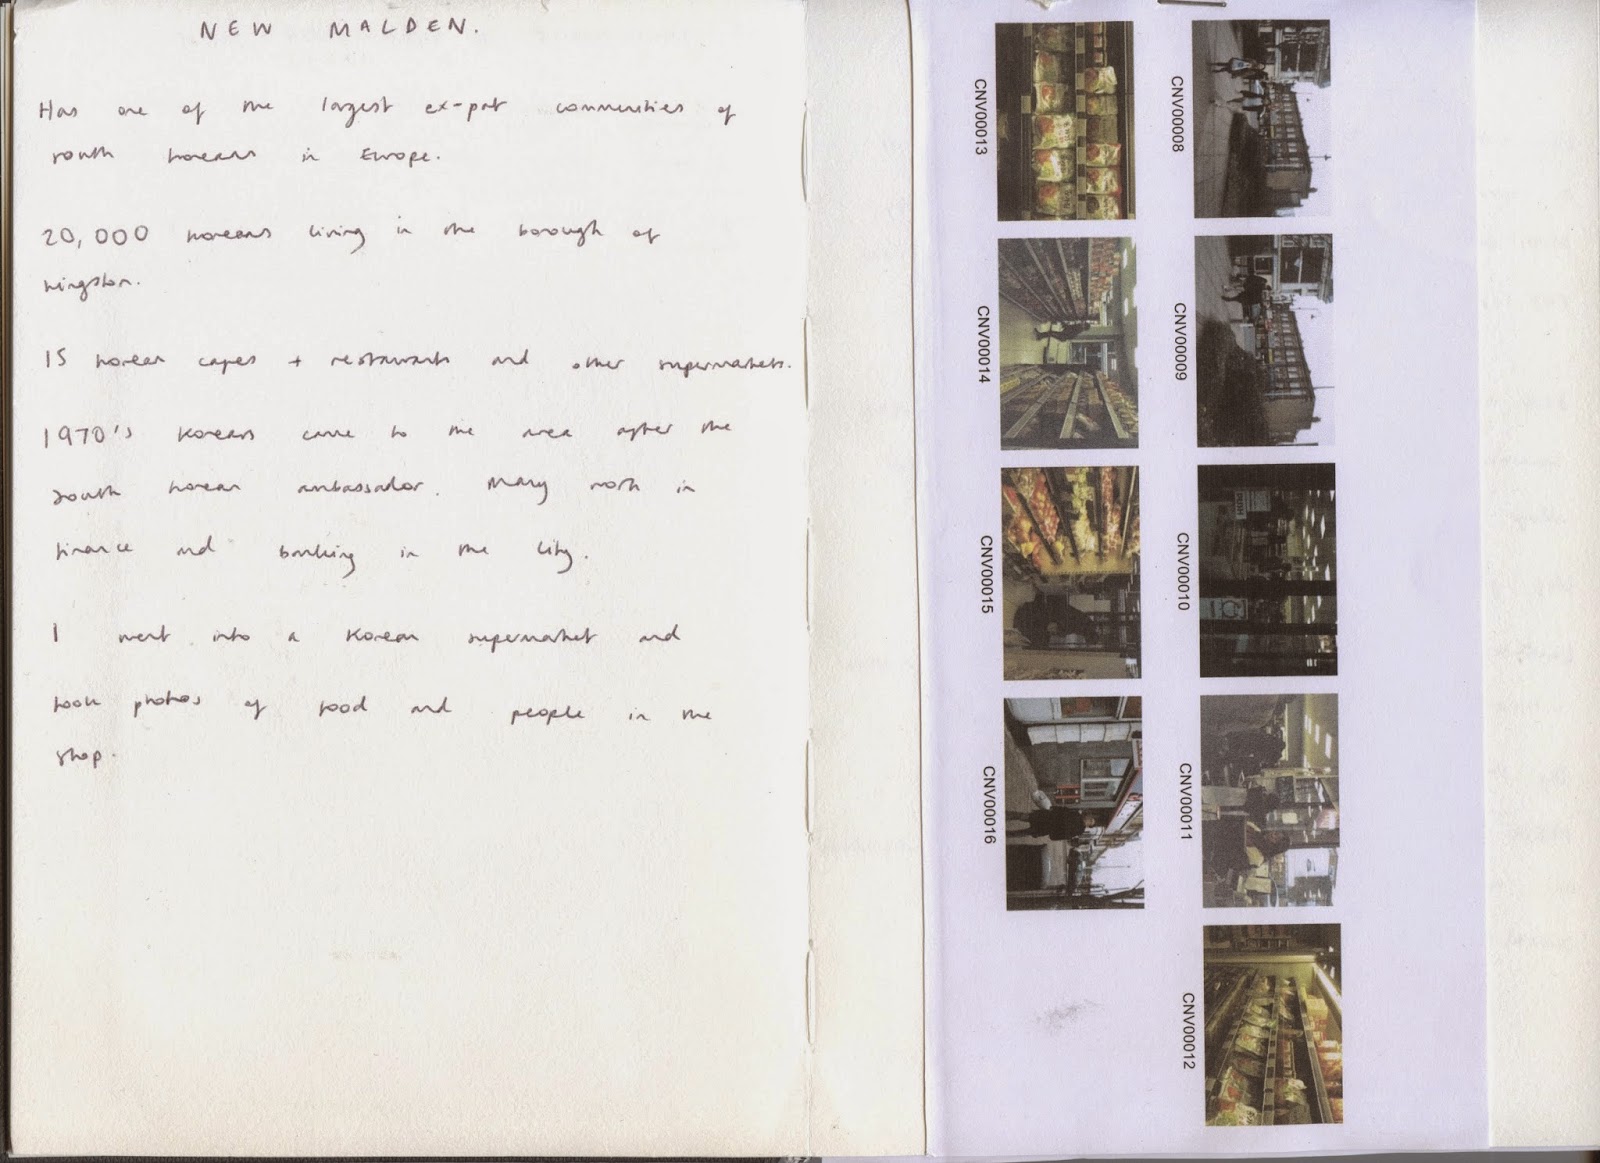 NEW MALDEN.
Has one of the largest ex-pat communities of
south koreans in Europe.
20,000 koreans living in the borough of
kingston.
15 korean cafes + restaurants and other supermarkets.
1970's Koreans came to the area after the
south korean ambassador. Many work in
finance and banking in the city.
I went into a Korean supermarket and
took photos of food and people in the
shop.
CNV00013
CNV00014
CNV00015
CNV00016
CNV00008
CNV00009
CNV00010
CNV00011
CNV00012